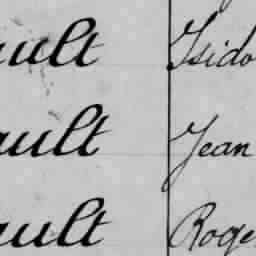 ault Isido
ault Jean
ault Roge